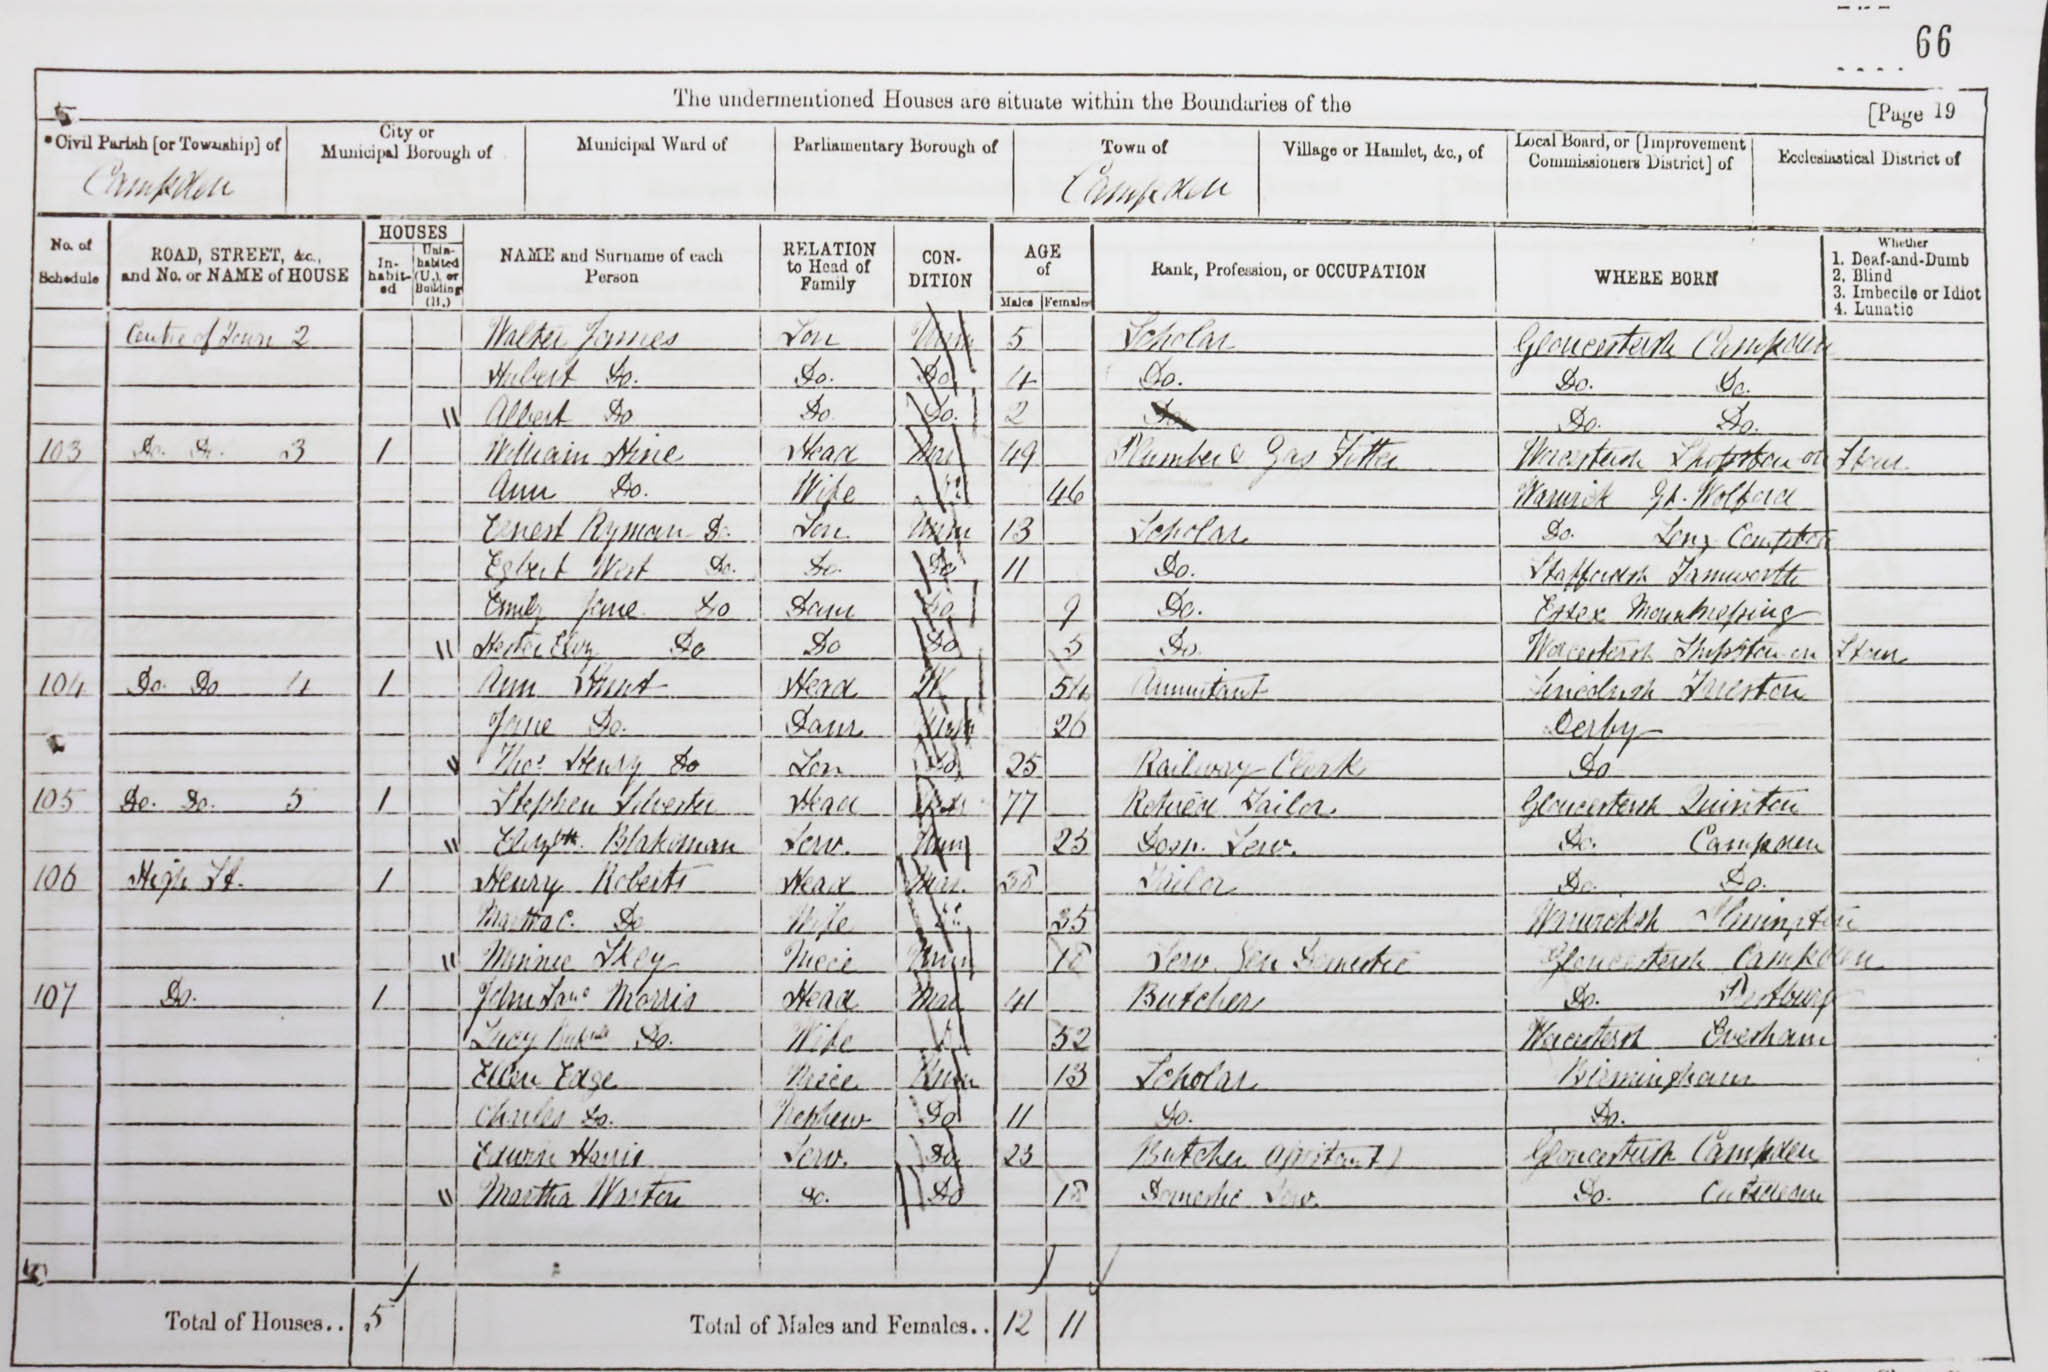 66
The undermentioned Houses are situate within the Boundaries of the
[Page 19
*Civil Parish [or Township] of
City or Municipal Borough of
Municipal Ward of
Parliamentary Borough of
Town of
Village or Hamlet, &c., of
Local Board, or [Improvement Commissioners District] of
Ecclesiastical District of
Campden Campden
No. of Schedule
ROAD, STREET, &c., and No. or NAME of HOUSE
HOUSES
In-habit-ed
Unin-habited (U.), or Building (B.)
NAME and Surname of each Person
RELATION to Head of Family
CON-DITION
AGE of
Males Females
Rank, Profession, or OCCUPATION
WHERE BORN
Whether
1. Deaf-and-Dumb
2. Blind
3. Imbecile or Idiot
4. Lunatic
Centre of Town 2 Walter James Son Unm 5 Scholar Gloucestersh Campden
Hubert Do. Do. Do 4 Do. Do. Do.
Albert Do Do. Do. 2 Do Do. Do.
103 Do. Do. 3 1 William Hine Head Mar 49 Plumber & Gas Fitter Worcestersh Shipston on Stour
Ann Do. Wife 46 Warwick Gt. Wolford
Ernest Ryman Do. Son Unm 13 Scholar Do. Long Compton
Egbert West Do. Do. Do 11 Do. Staffordsh Tamworth
Emily Jane Do Daur Do 9 Do. Essex
Hester Eliz Do Do Do 5 Do. Worcestersh Shipston on Stour
104 Do. Do 4 1 Ann Head W 54 Annuitant Lincolnsh
Jane Do. Daur Unm 26 Derby
Thos. Henry Do Son Do 25 Railway Clerk Do
105 Do. Do. 5 1 Stephen Silvester Head 77 Retired Tailor Gloucestersh Quinton
Elizth. Blakeman Serv. Unm 25 Dom. Serv. Do. Campden
106 High St. 1 Henry Roberts Head Mar. 38 Tailor Do. Do.
Martha C. Do Wife 35 Warwicksh Ilmington
Minnie Skey Niece Unm 18 Serv. Gen Domestic Gloucestersh Campden
107 Do. 1 John Morris Head Mar 41 Butcher Do.
Lucy Do. Wife 52 Worcestersh Evesham
Ellen Edge Niece Unm 13 Scholar Birmingham
Charles Do. Nephew Do 11 Do. Do.
Edwin Harris Serv. Do 23 Butcher Assistant Gloucestersh Campden
Martha Do. Do 18 Domestic Serv. Do. Cutsdean
Total of Houses.. 5
Total of Males and Females.. 12 11